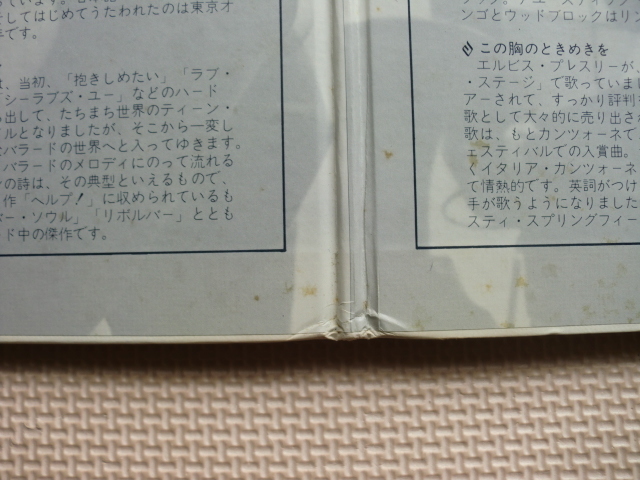 してはじめてうたわれたのは東京オ
です。
は、当初、「抱きしめたい」「ラブ・
シーラブズ・ユー」などのハード
出して、たちまち世界のティーン・
ルとなりましたが、そこから一変し
バラードの世界へと入ってゆきます。
バラードのメロディにのって流れる
の詩は、その典型といえるもので、
作「ヘルプ！」に収められているも
バー・ソウル」「リボルバー」ととも
ド中の傑作です。
ンゴとウッドブロックはリ
この胸のときめきを
エルビス・プレスリーが、
・ステージ」で歌っていまし
アーされて、すっかり評判
歌として大々的に売り出さ
歌は、もとカンツォーネで
ェスティバルでの入賞曲。
くイタリア・カンツォーネ
て情熱的です。英詞がつけ
手が歌うようになりました
スティ・スプリングフィー